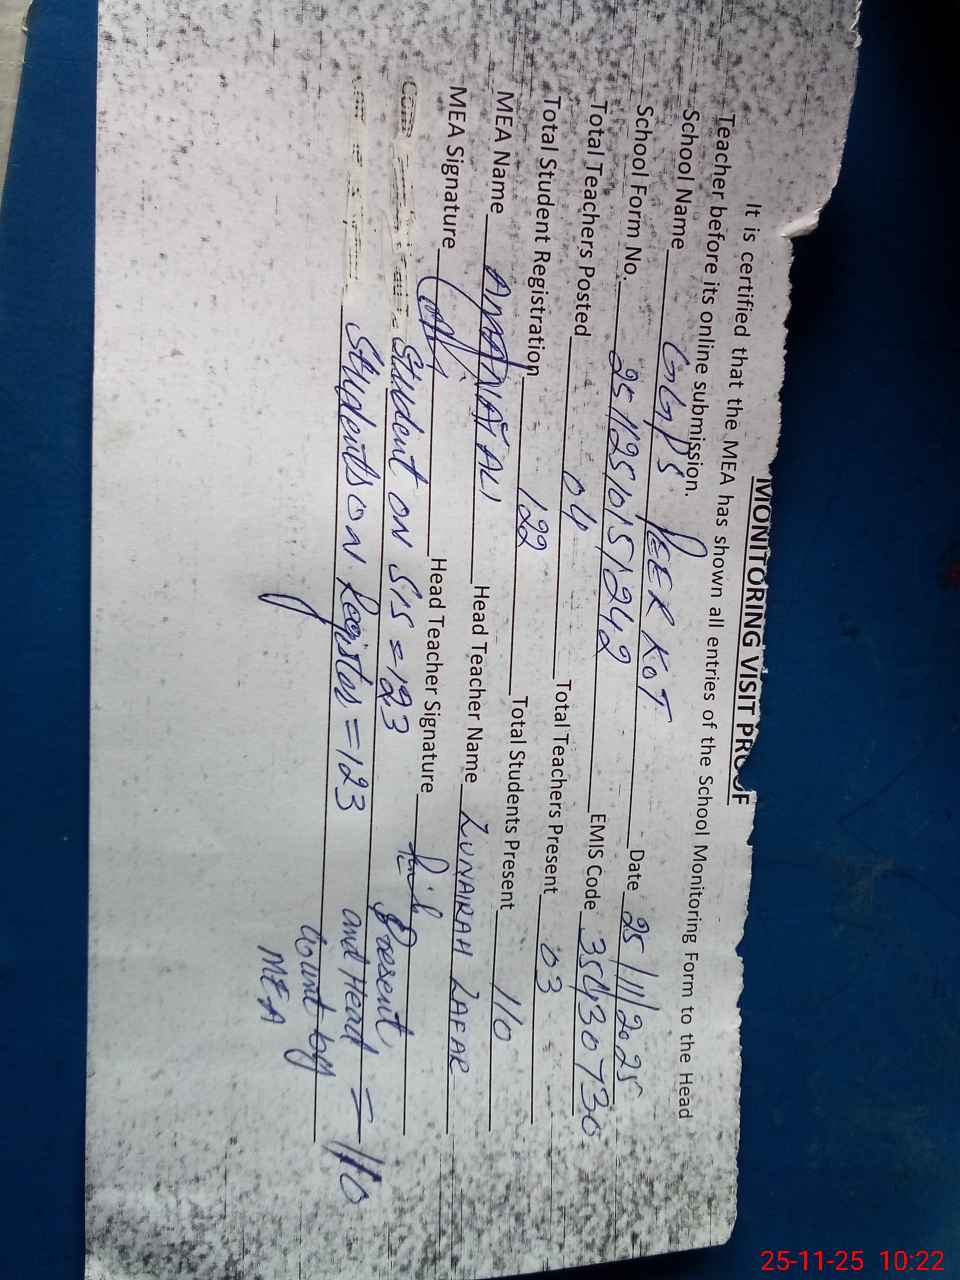 MONITORING VISIT PROOF
It is certified that the MEA has shown all entries of the School Monitoring Form to the Head
Teacher before its online submission.
School Name GGPS PEER KOT Date 25/11/2025
School Form No. 25112510151242 EMIS Code 35430730
Total Teachers Posted 04 Total Teachers Present 03
Total Student Registration 122 Total Students Present 110
MEA Name AMANAT ALI Head Teacher Name ZUNAIRAH ZAFAR
MEA Signature Head Teacher Signature
Student on SIS = 123 Present
Students on Register = 123 and Head = 110
Count by
MEA
25-11-25 10:22